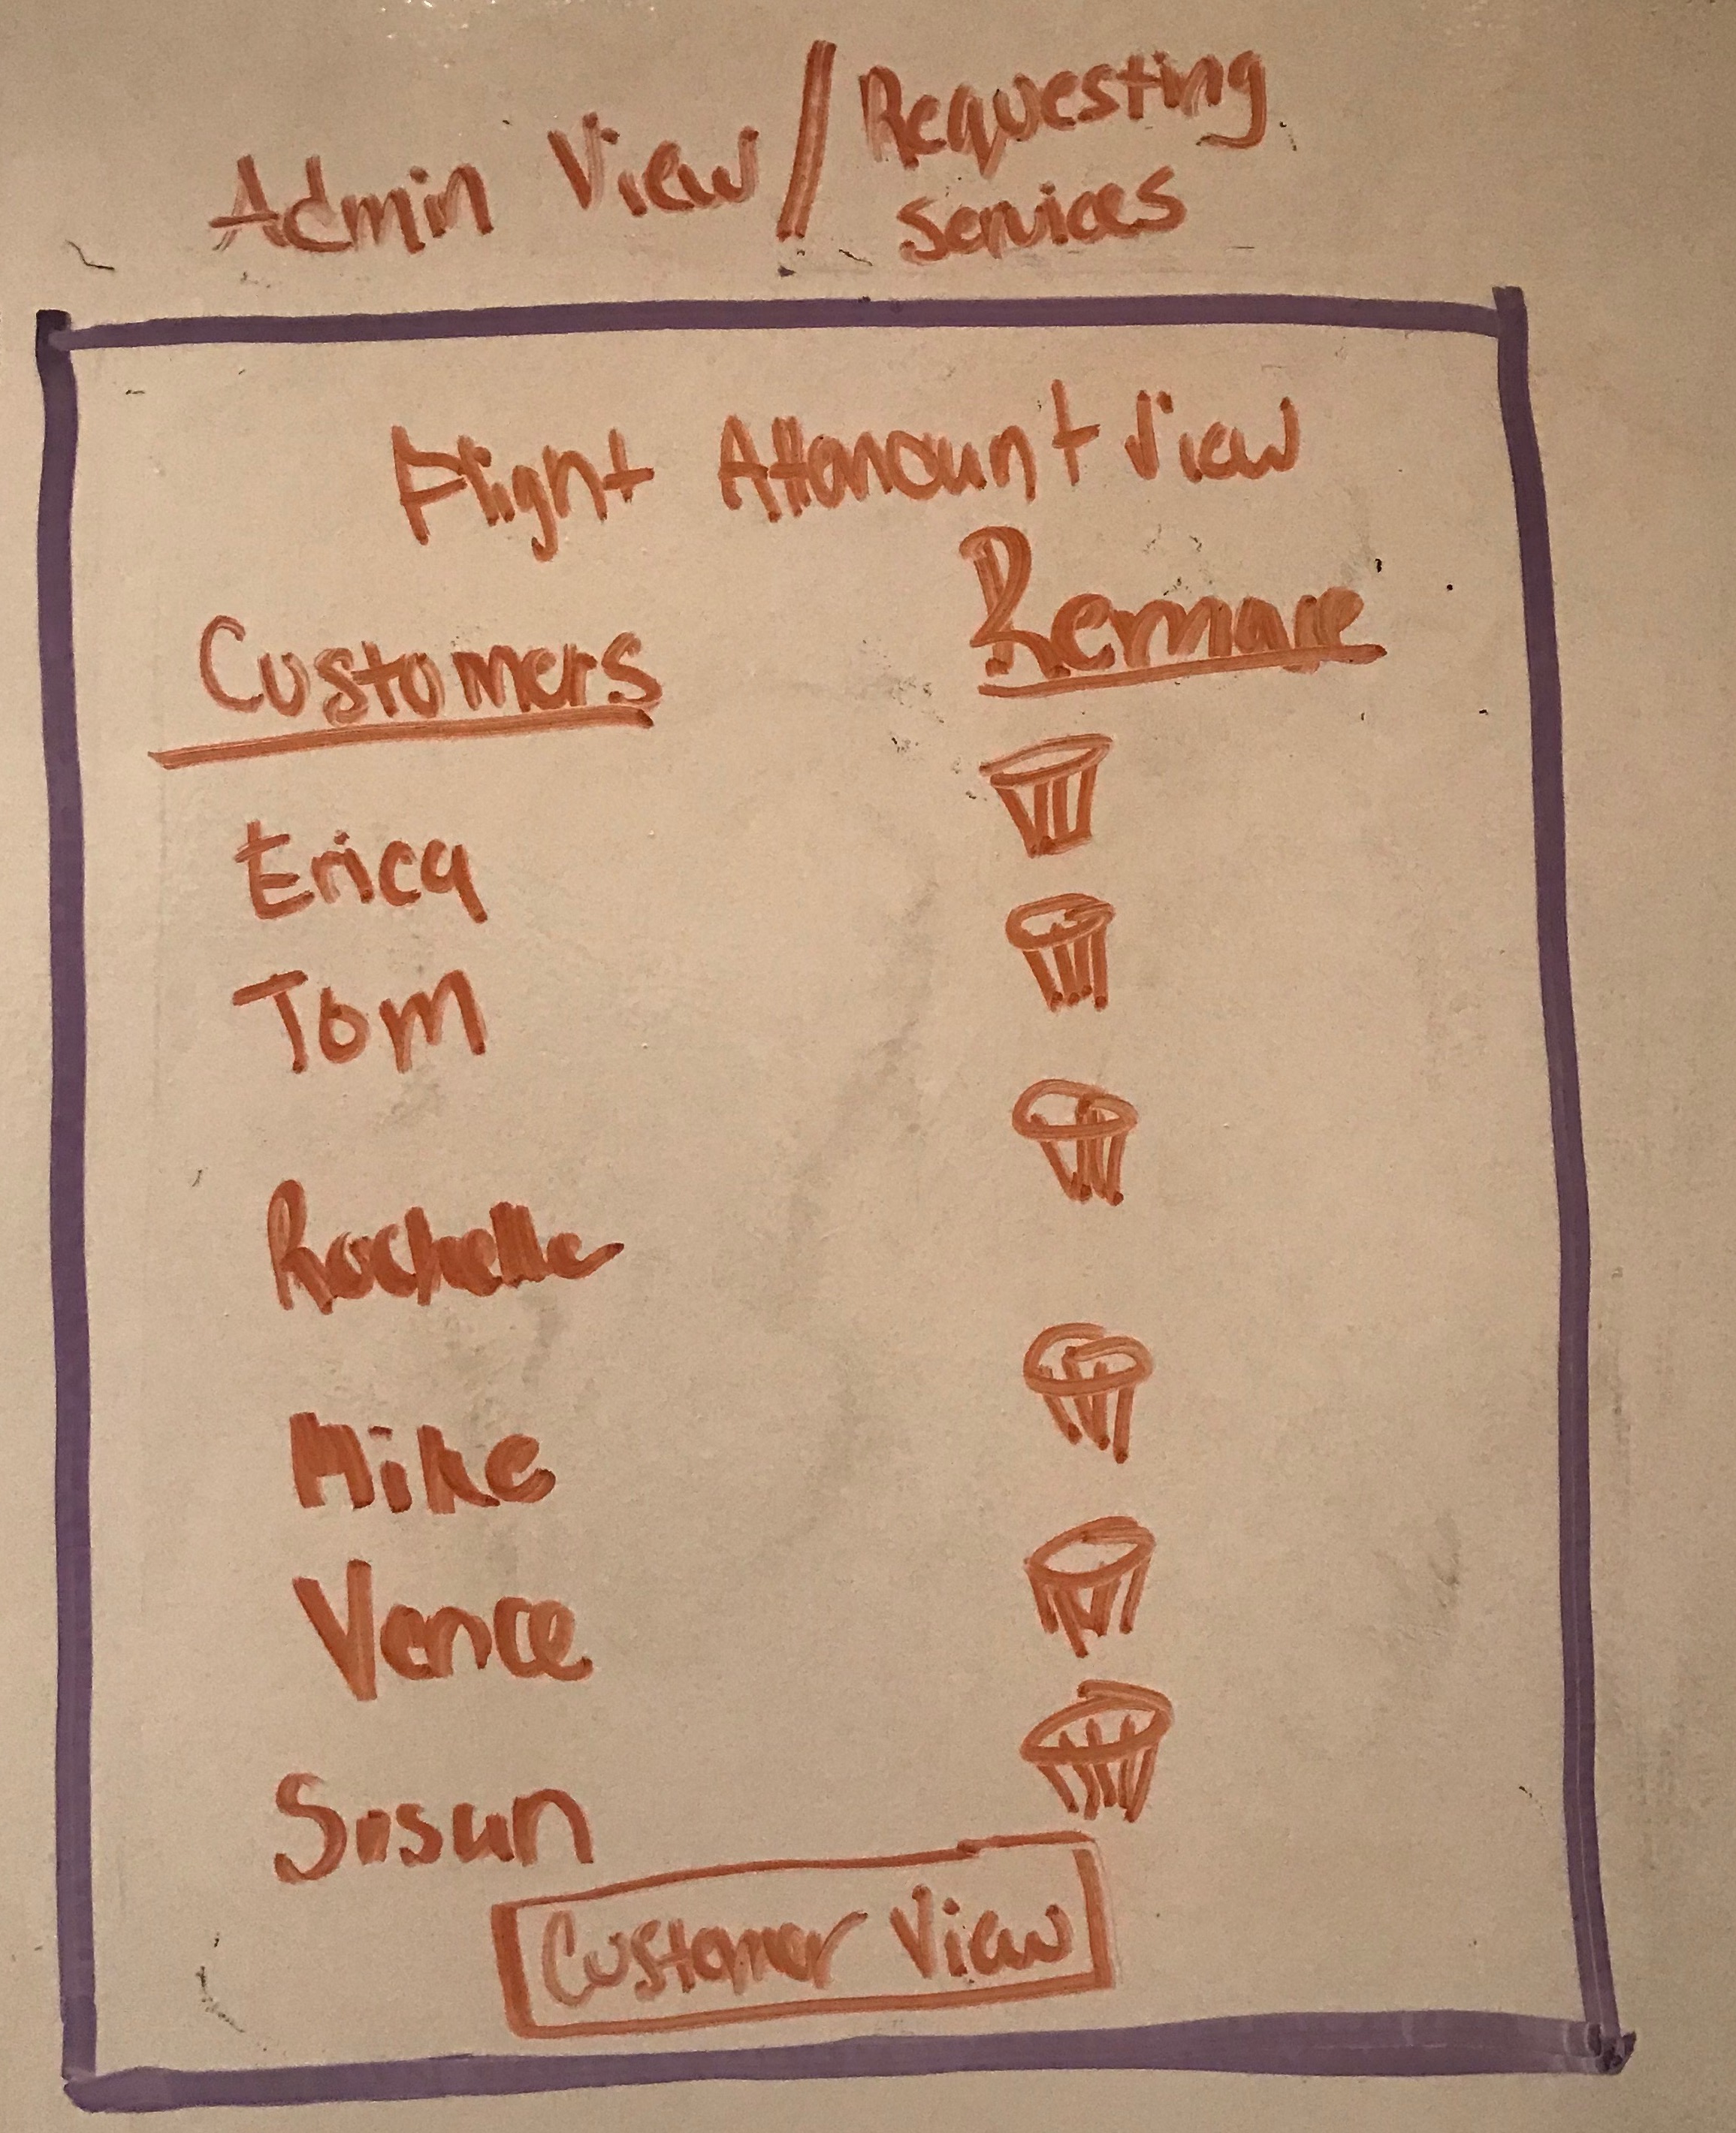 Admin View / Requesting
Services
Flight Attanount View
Customers Remove
Erica
Tom
Rochelle
Mike
Vence
Susan
Customer View